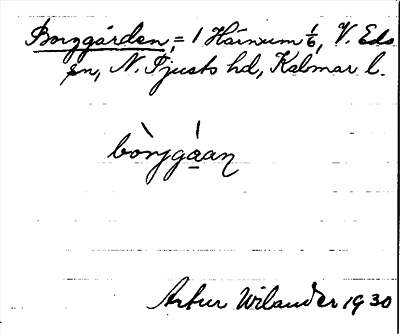 Borggården, = 1 Härnum 1/6, V. Eds
sn, N. Tjusts hd, Kalmar l.
bòrjgáan
Artur Wilander 1930